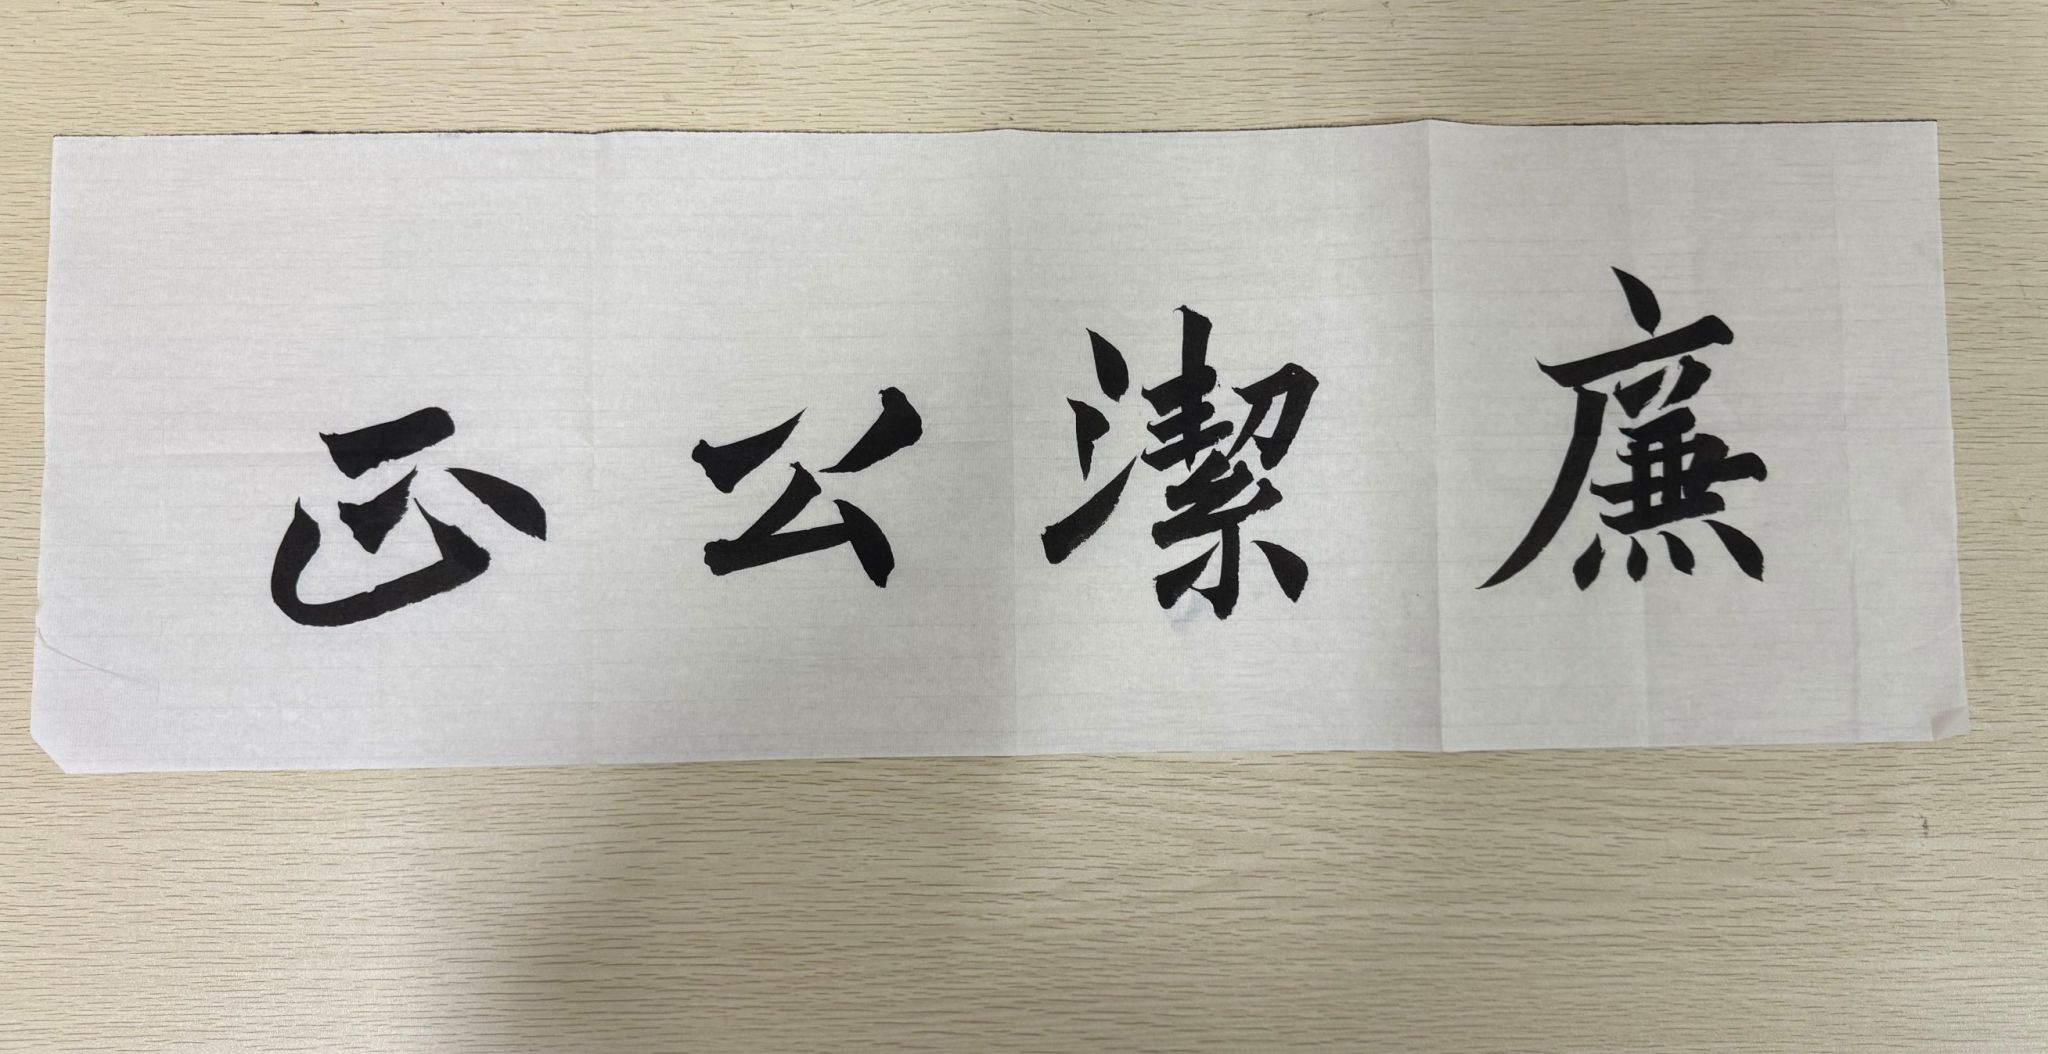 廉潔公正